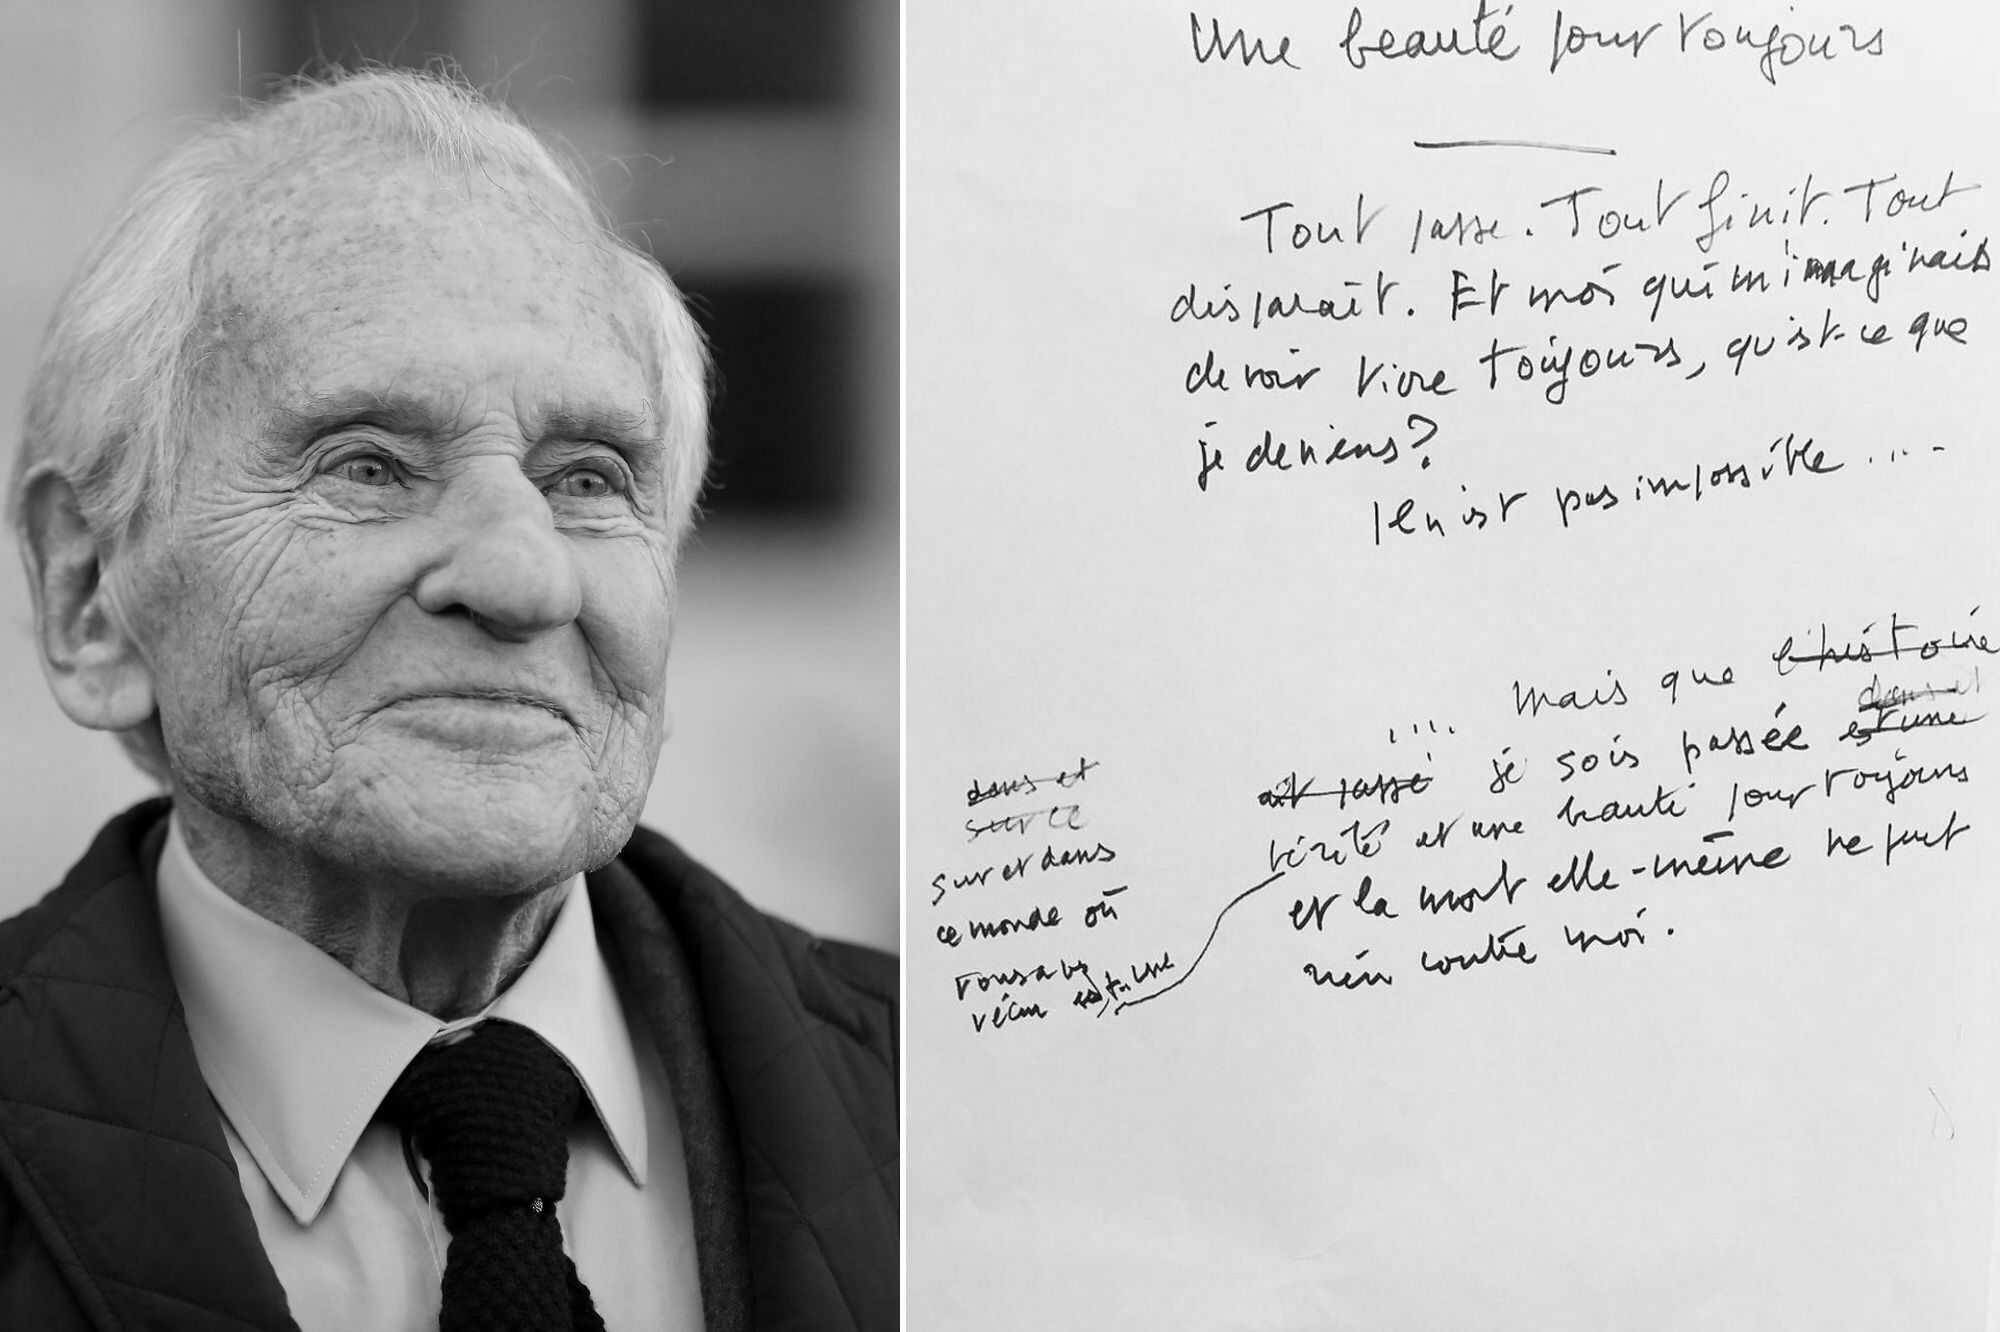 Une beauté pour toujours
Tout passe. Tout finit. Tout
disparaît. Et moi qui m'imaginais
devoir vivre toujours, qu'est-ce que
je deviens?
Il n'est pas impossible ....
.... mais que l'histoire
dans et
ait passé je sois passée et une
vérité et une beauté pour toujours
et la mort elle-même ne peut
rien contre moi.
dans et
sur ce
sur et dans
ce monde où
vous avez
vécu est une